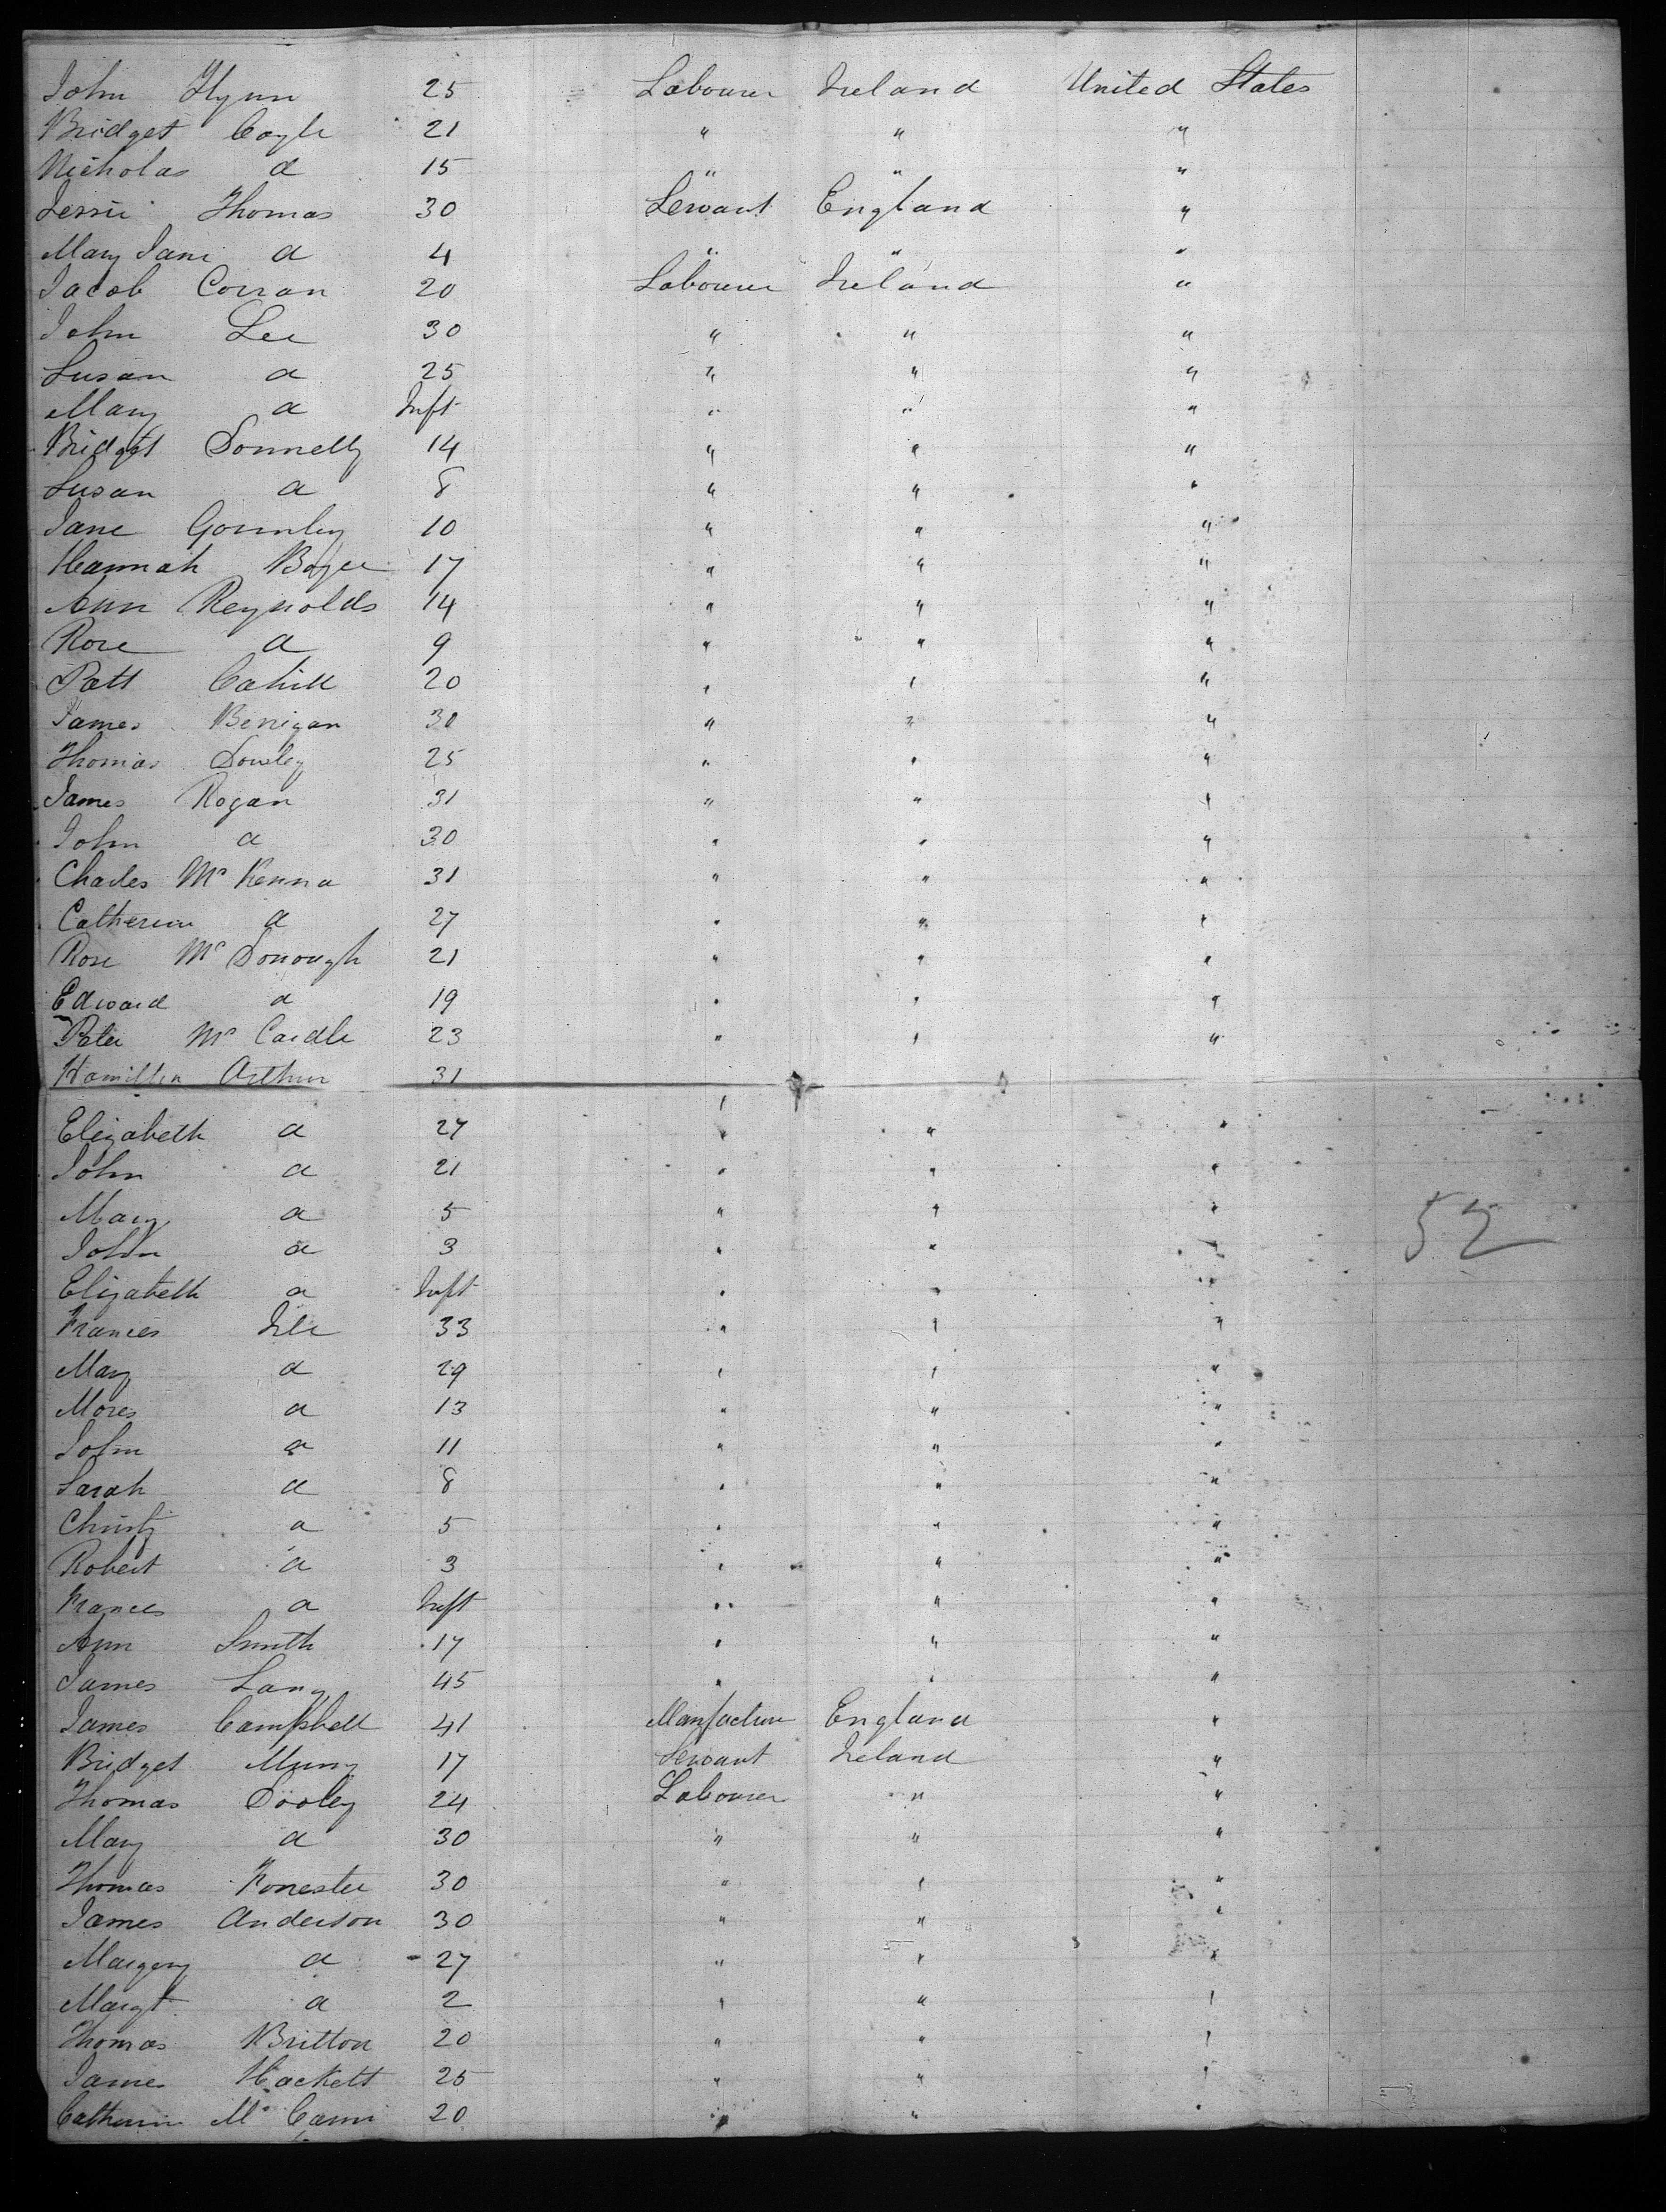 John Flynn 25 Labourer Ireland United States
Bridget Coyle 21 " " "
Nicholas a 15 " " "
Jessie Thomas 30 Servant England "
Mary Jane a 4 " " "
Jacob Corran 20 Labourer Ireland "
John Lee 30 " " "
Susan a 25 " " "
Mary a Inft " " "
Bridget Donnelly 14 " " "
Susan a 8 " " "
Jane Gormley 10 " " "
Hannah 17 " " "
Ann Reynolds 14 " " "
Rose a 9 " " "
Patt Cahill 20 " " "
James Benigan 30 " " "
Thomas Dowley 25 " " "
James Rogan 31 " " "
John a 30 " " "
Charles Mc Kenna 31 " " "
Catherine a 27 " " "
Rose Mc Donough 21 " " "
Edward a 19 " " "
Peter Mc Cardle 23 " " "
Hamilton Arthur 31
Elizabeth a 27 " " "
John a 21 " " "
Mary a 5 " " "
John a 3 " " "
52
Elizabeth a Inft " " "
Frances 33 " " "
Mary a 29 " " "
Moses a 13 " " "
John a 11 " " "
Sarah a 8 " " "
Christy a 5 " " "
Robert a 3 " " "
Frances a Inft " " "
Ann Smith 17 " " "
James Lang 45 " " "
James Campbell 41 Manfacture England "
Bridget 17 Servant Ireland "
Thomas Dooley 24 Labourer " "
Mary a 30 " " "
Thomas Forrester 30 " " "
James Anderson 30 " " "
Margery a 27 " " "
Margt a 2 " " "
Thomas Britton 20 " " "
James Hackett 25 " " "
Catherine Mc Cann 20 " " "